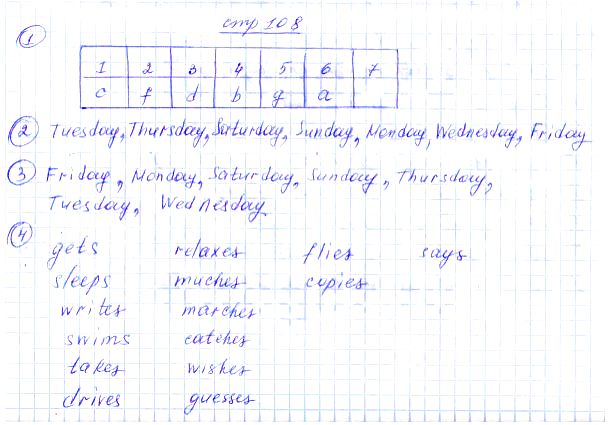 стр 108
1
1 2 3 4 5 6 7
c f d b g a
2 Tuesday, Thursday, Saturday, Sunday, Monday, Wednesday, Friday
3 Friday, Monday, Saturday, Sunday, Thursday,
Tuesday, Wednesday.
4
gets relaxes flies says
sleeps muches copies
writes marches
swims catches
takes wishes
drives guesses